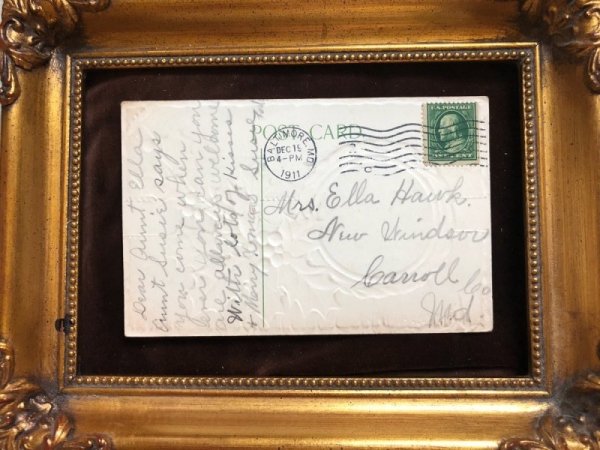 POST CARD
BALTIMORE, MD.
DEC 19
4-PM
1911
U.S. POSTAGE
Mrs. Ella Hawk.
New Windsor
Carroll Co
Md.
Dear Aunt Ella
Aunt Susie says
you come when
ever you can you
are always welcome
With lots of Kisses
+ Mary